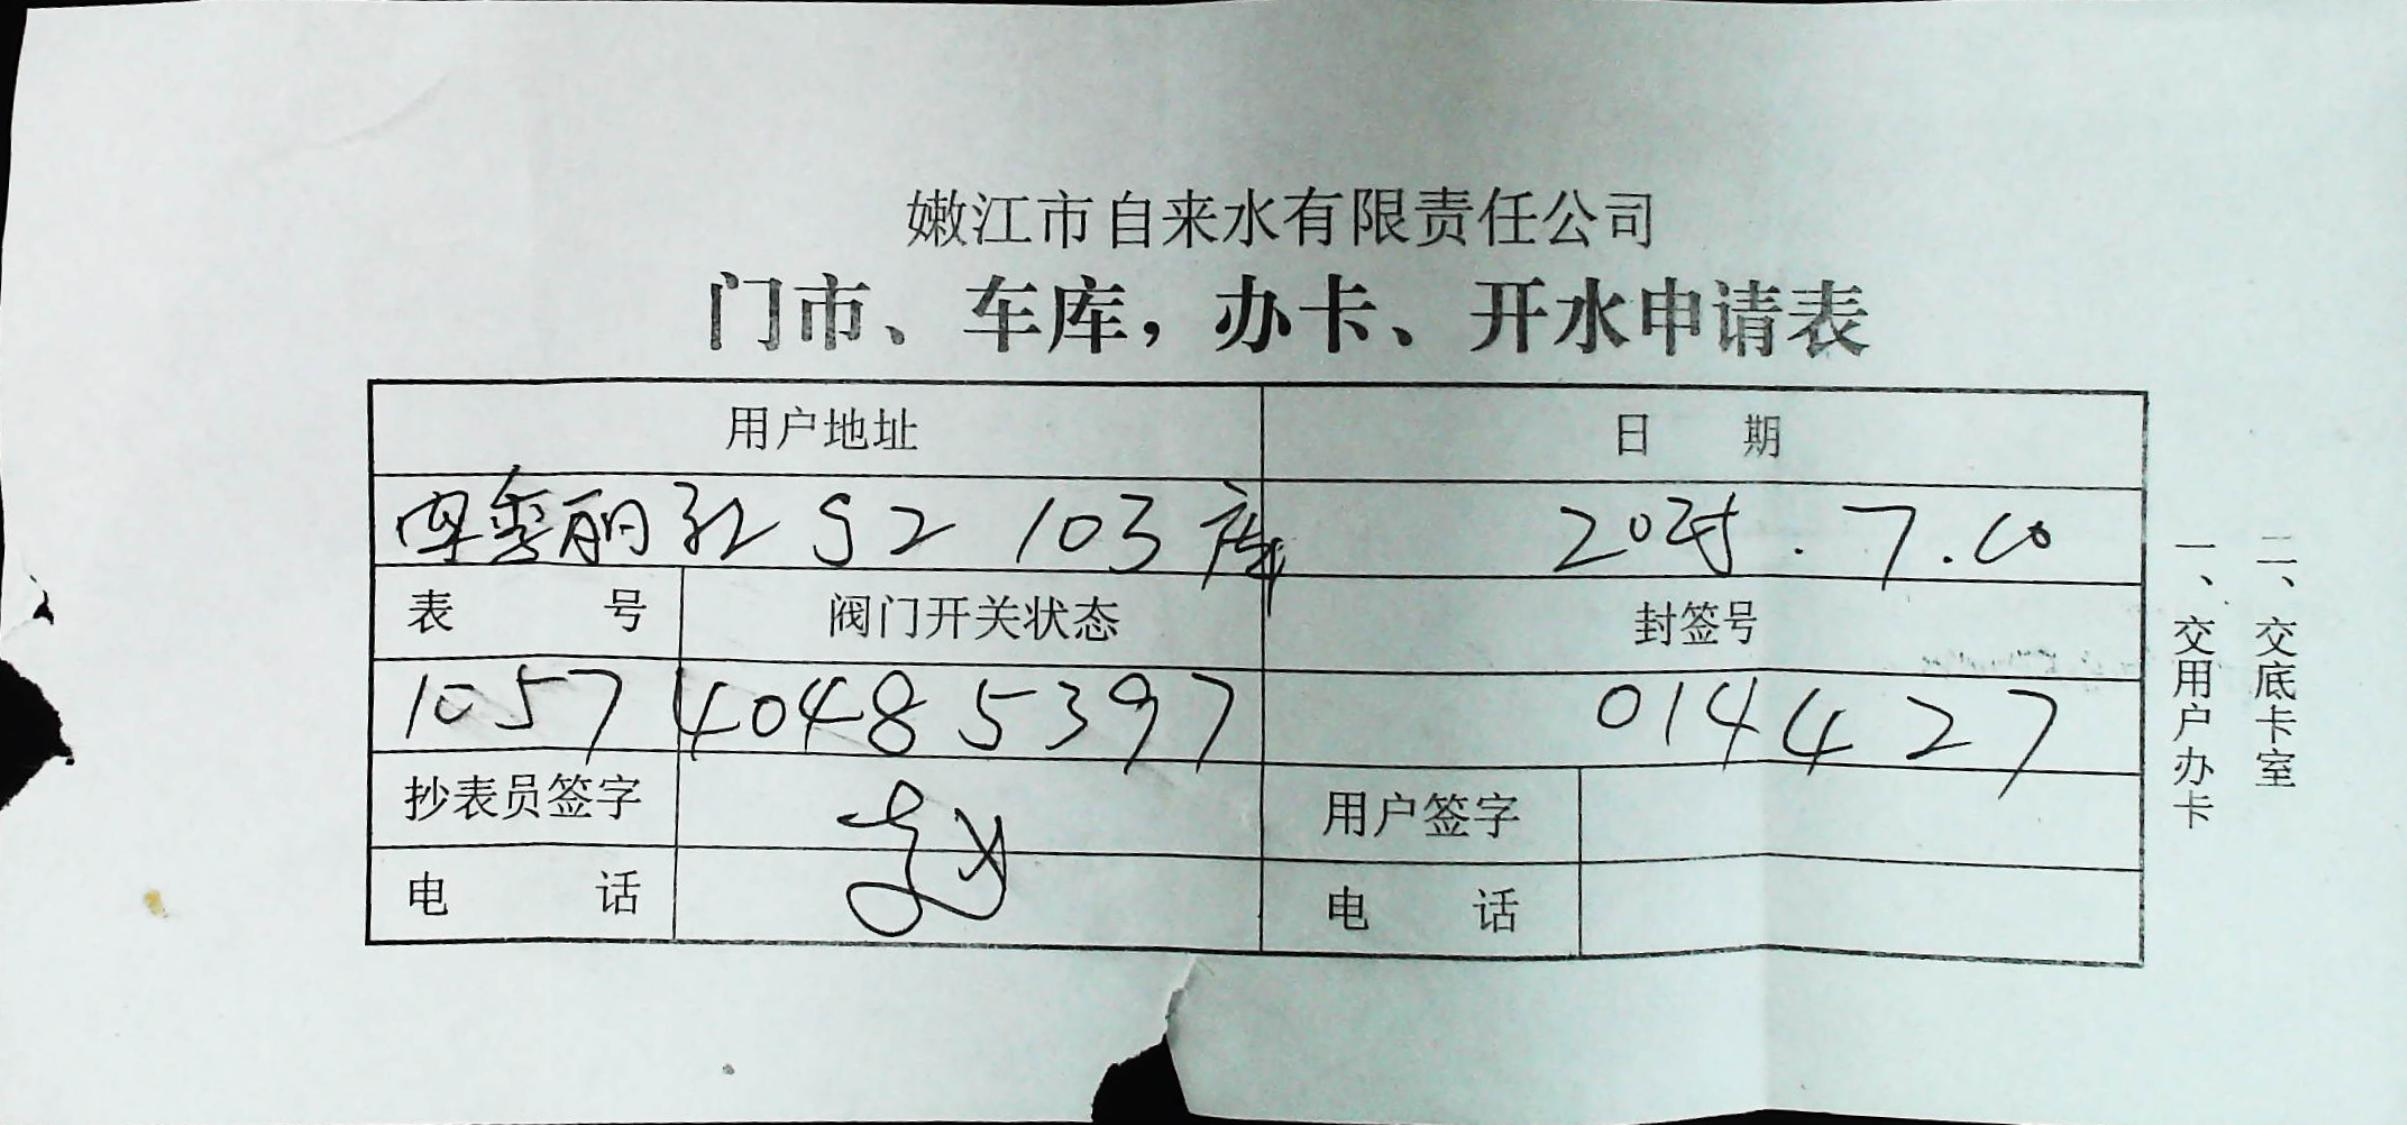 嫩江市自来水有限责任公司
门市、车库，办卡、开水申请表
用户地址 日 期
秀丽 S2 103库 7.10
表 号 阀门开关状态 封签号
1057 40485397 014427
抄表员签字 用户签字
电 话 电 话
一、交用户办卡
二、交底卡室